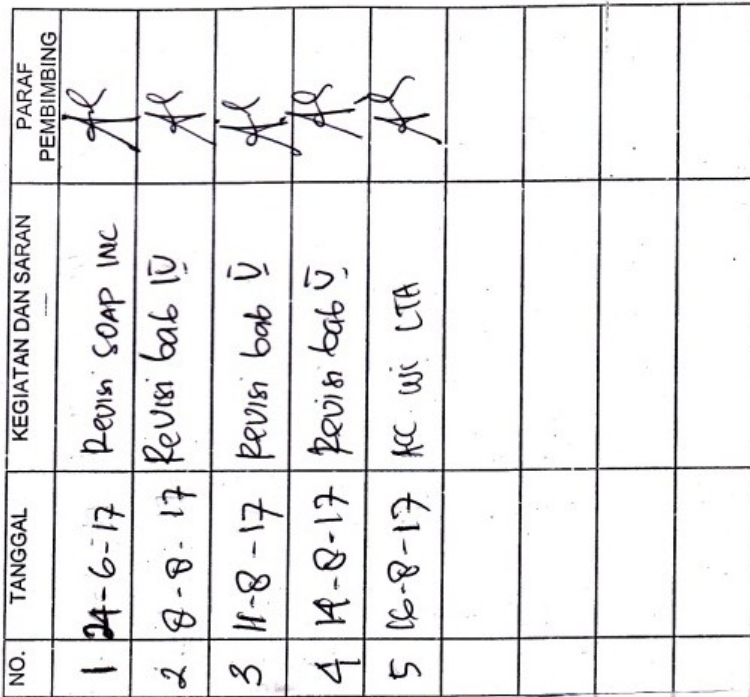 NO. TANGGAL KEGIATAN DAN SARAN PARAF PEMBIMBING
1 24-6-17 Revisi SOAP INC
2. 8-8-17 Revisi bab IV
3 11-8-17 Revisi bab V
4 14-8-17 Revisi bab V
5 16-8-17 ACC LTA